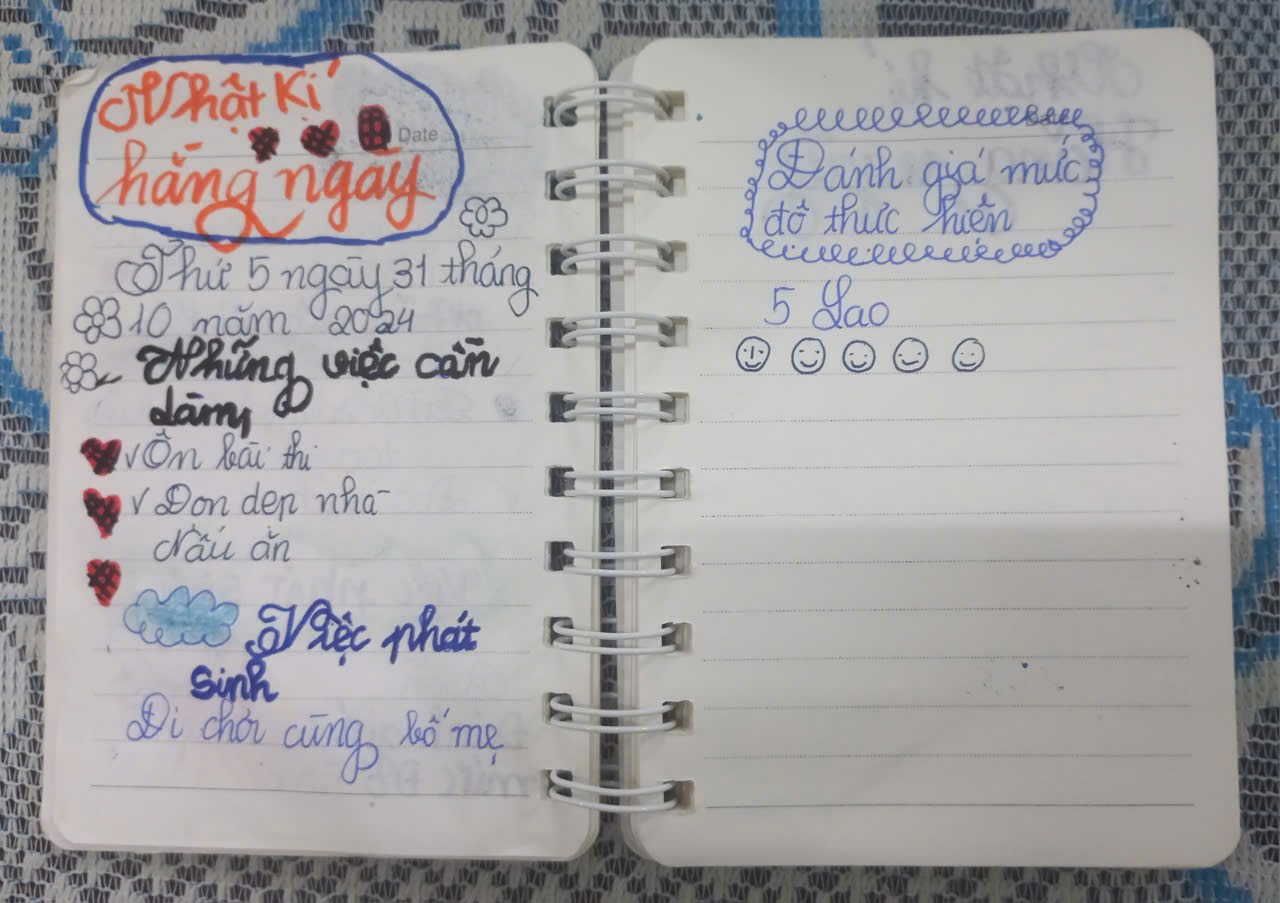 Nhật Kí
Date
hằng ngày
Thứ 5 ngày 31 tháng
10 năm 2024
Những việc cần
làm
✓ Ôn bài thi
✓ Dọn dẹp nhà
Nấu ăn
Việc phát
sinh
Đi chơi cùng bố mẹ
Đánh giá mức
độ thực hiện
5 Sao